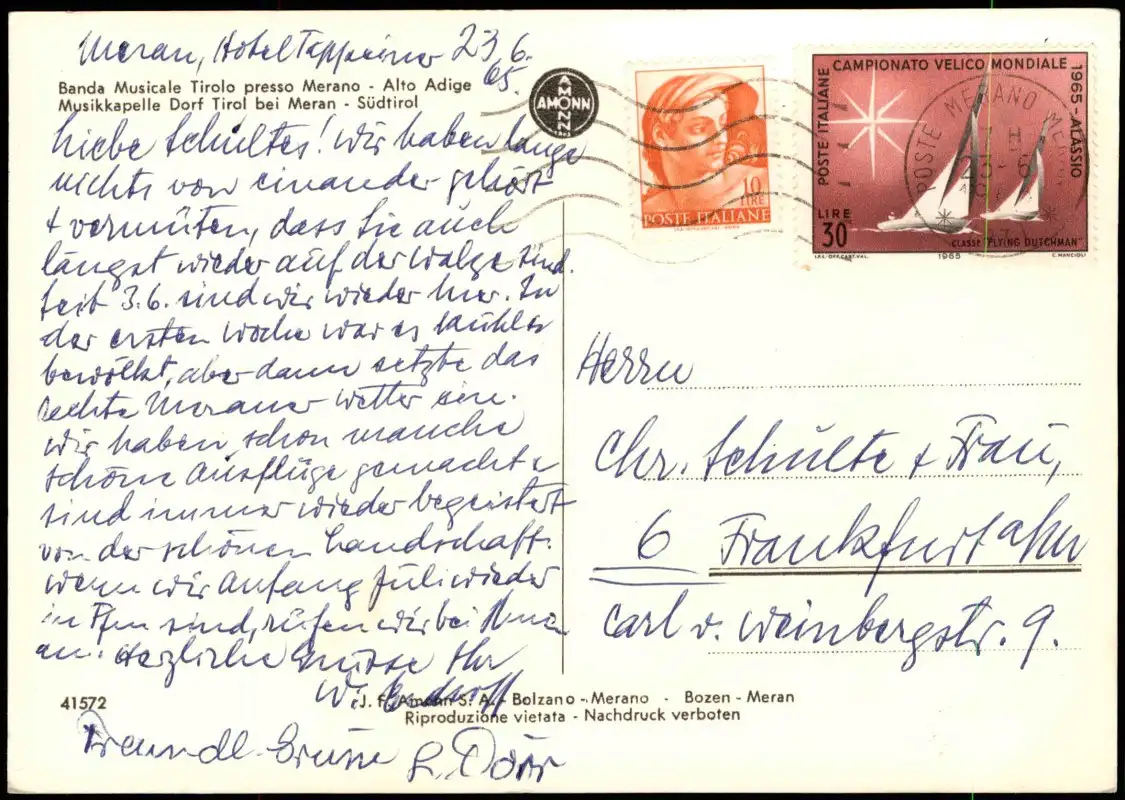 Meran, Hotel Tappeiner 23.6.
65.
Banda Musicale Tirolo presso Merano - Alto Adige
Musikkapelle Dorf Tirol bei Meran - Südtirol
AMONN
AMONN
Liebe Schultes! Wir haben lange
nichts von einander gehört
+ vermuten, dass Sie auch
längst wieder auf der Walze sind.
Seit 3.6. sind wir wieder hier. In
der ersten Woche war es kühl
bewölkt, aber dann setzte das
echte Meraner Wetter ein.
Wir haben schon manche
schöne Ausflüge gemacht +
sind immer wieder begeistert
von der schönen Landschaft.
Wenn wir Anfang Juli wieder
in Ffm sind, rufen wir bei Ihnen
an. Herzliche Grüsse Ihr
W.
41572
J. F. Amonn S. A. - Bolzano - Merano - Bozen - Meran
Riproduzione vietata - Nachdruck verboten
Freundl. Grüsse L. Dörr
10
LIRE
POSTE ITALIANE
CAMPIONATO VELICO MONDIALE
1965 - ALASSIO
POSTE ITALIANE
LIRE
30
CLASSE "FLYING DUTCHMAN"
I.P.S. OFF. CART. VAL. 1965 C. MANCIOLI
POSTE MERANO
Herrn
Chr. Schulte + Frau,
6 Frankfurt a/M
Carl v. Weinbergstr. 9.